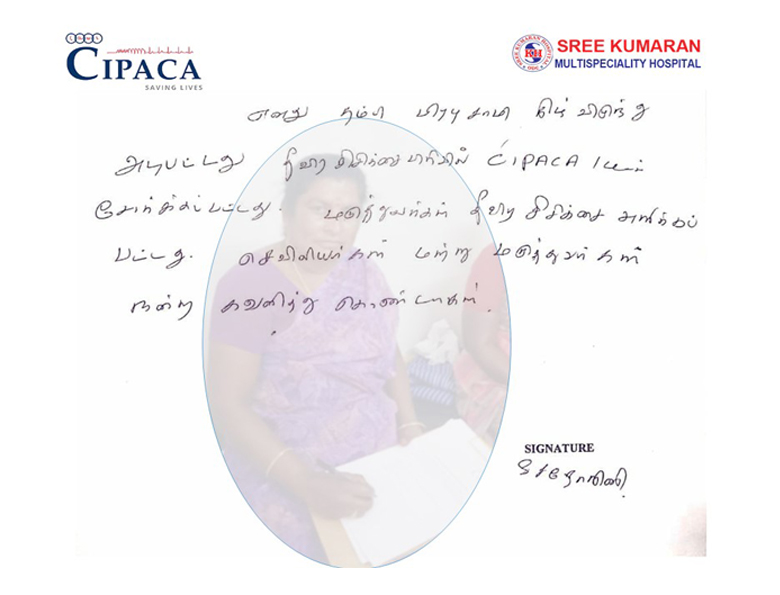 CIPACA
SAVING LIVES
SREE KUMARAN HOSPITAL
KH
SREE KUMARAN
MULTISPECIALITY HOSPITAL
எனது தம்பி பிரபு சாமி கீழ் விழுந்து
அடிபட்டது தீவிர சிகிச்சை பிரிவில் CIPACA
சேர்க்கப்பட்டது. மருத்துவர்கள் தீவிர சிகிச்சை அளிக்கப்
பட்டது. செவிலியர்கள் மற்று மருத்துவர்கள்
நன்று கவனித்து கொண்டார்கள்.
SIGNATURE